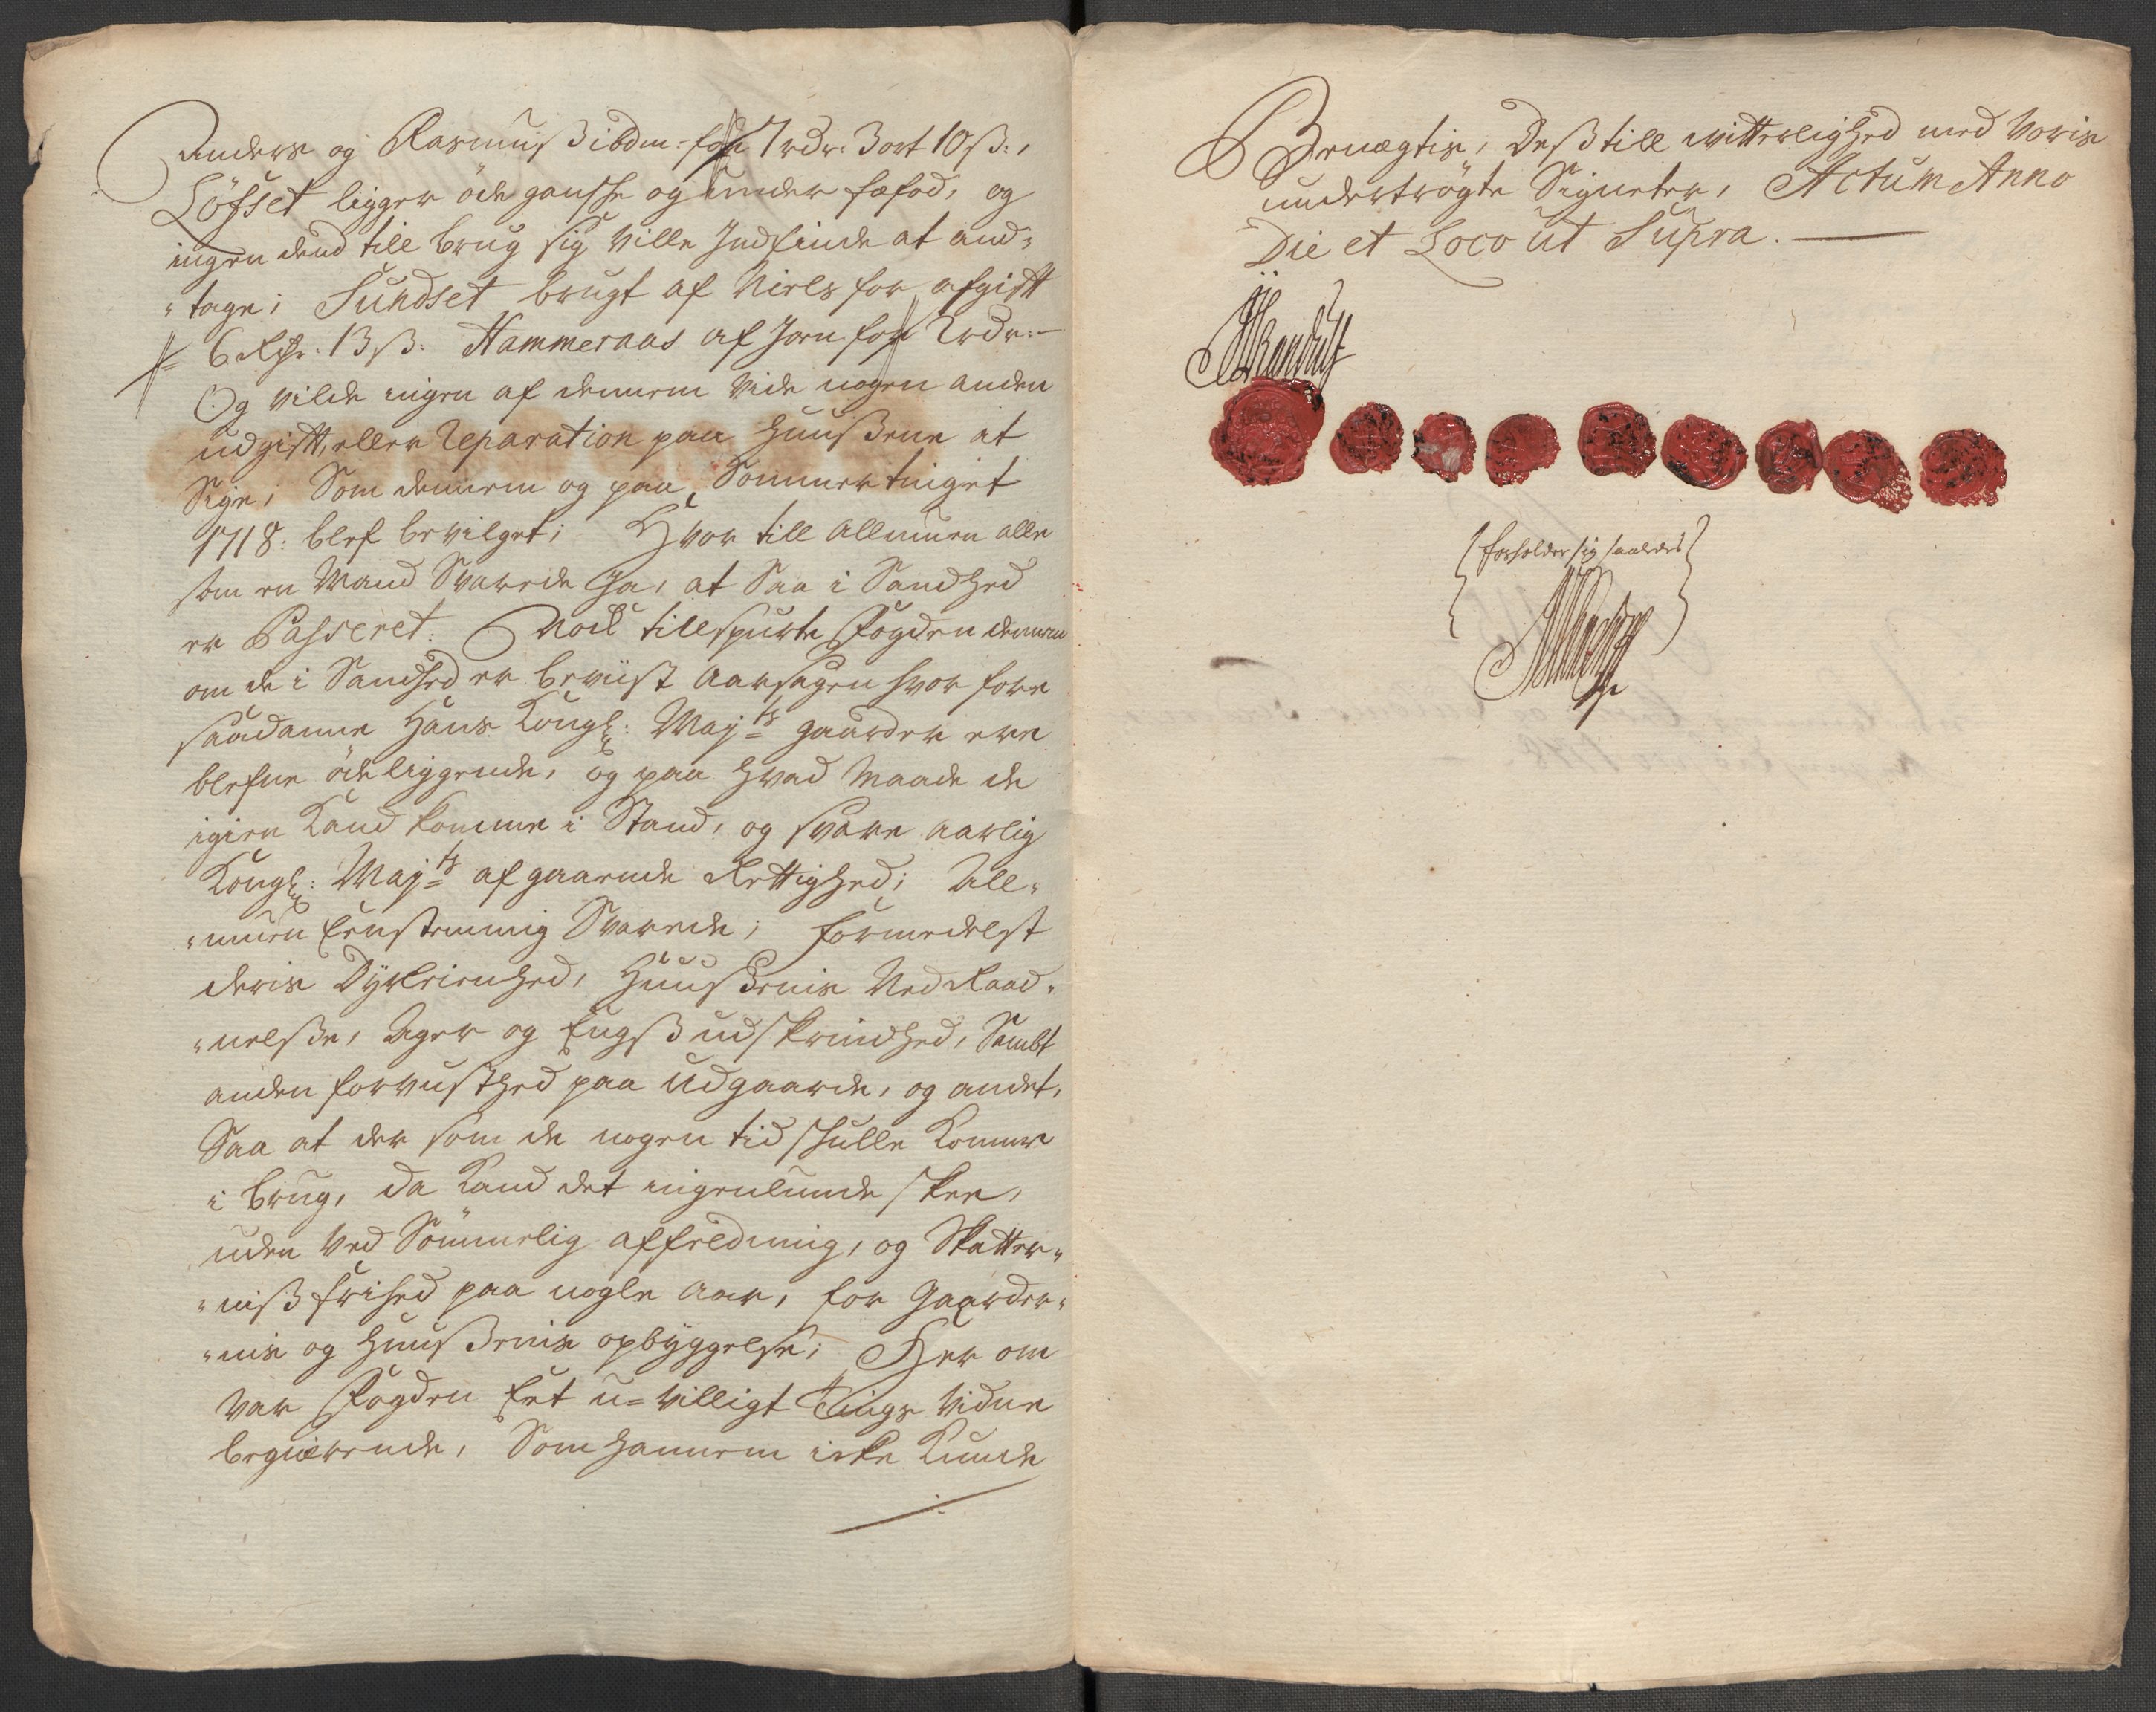 Anders og Rasmus ibdm: for 7 rdr: 3 ort 10 ß:,
Löfset ligger öde gansche og under fæfod, og
ingen dend till brug sig ville Indfinde at and-
-tage; Sundset brugt af Niels for afgift
6 Rdr: 13 ß: Hammeraas af Joen for 2 rdr:
Og vilde ingen af dennem vide nogen anden
udgift, eller Reparation paa Huußene at
Sige; Som dennem og paa Sommertinget
1718: blef bevilget; Hvor till Allmuen alle
som en Mand Svarede Ja, at Saa i Sandhed
er Passeret: Noch tillspurte Fogden dennem
om de i Sandhed er beviist Aarsagen hvor fore
saadanne Hans Kongl: Mayts gaarder ere
blefne öde liggende, og paa hvad Maade de
igien Kand komme i Stand, og svare aarlig
Kongl: Mayts afgaaende Rettighed; All-
-muen Eenstemmig Svarede; formedelst
deris Dyrleienhed, Huußenis Ved Raad-
-nelße, Ager og Engß udskrindhed, Sambt
anden forvusthed paa Udgaarde, og andet,
Saa at der som de nogen tid schulle Komme
i brug, da Kand det ingenlunde skee,
uden Ved Sömmelig affeldning, og Skatter-
-niß frihed paa nogle Aar, for Gaarder-
-nis og Huußenis opbyggelse; Her om
var Fogden Eet u-villigt Tings Vidne
begierende, Som hannem icke Kunde
Benegtis, Deß till witterlighed med Voris
undertrögte Signeter, Actum Anno
Die et Loco ut Supra.
forholder sig saaledes